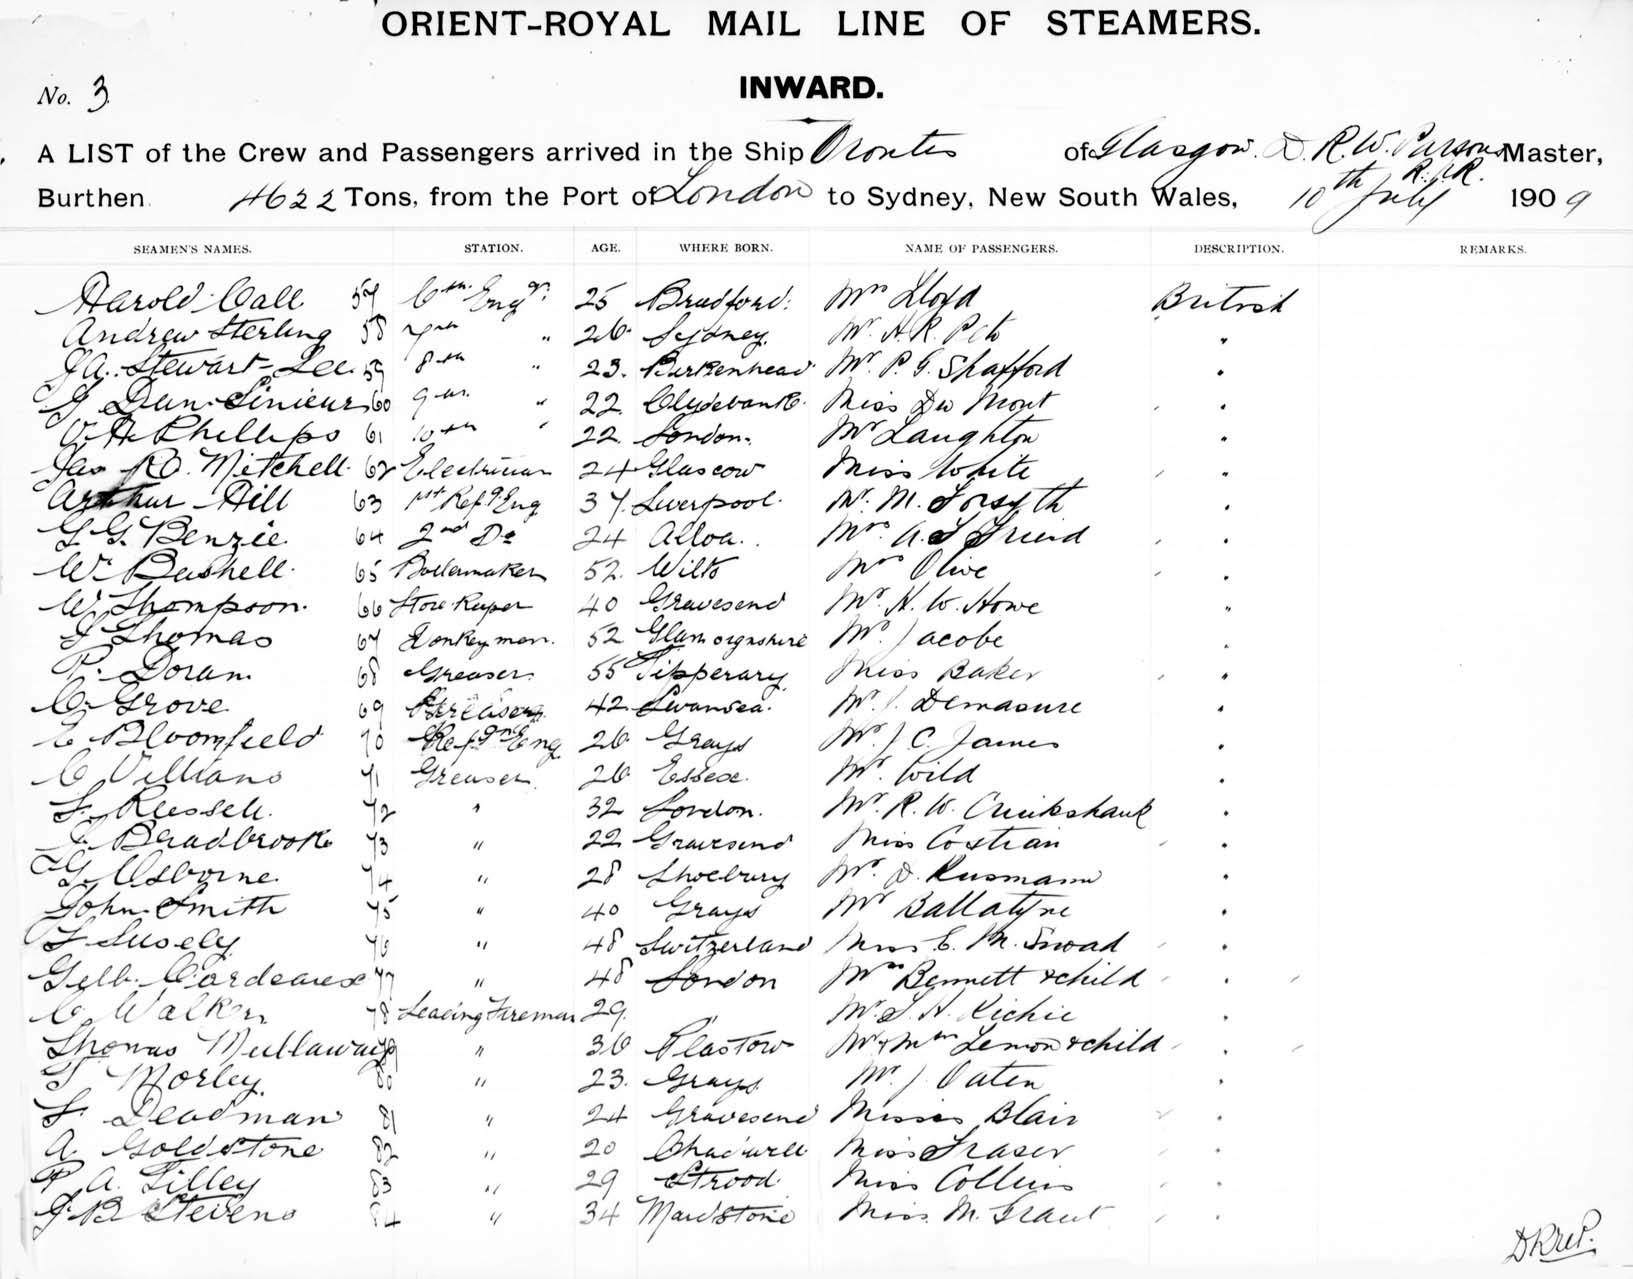 ORIENT-ROYAL MAIL LINE OF STEAMERS.
No. 3.
INWARD.
A LIST of the Crew and Passengers arrived in the Ship Orontes of Glasgow. D. R. W. Parsons Master,
R.N.R.
Burthen 4622 Tons, from the Port of London to Sydney, New South Wales, 10th July 1909
SEAMEN'S NAMES. STATION. AGE. WHERE BORN. NAME OF PASSENGERS. DESCRIPTION. REMARKS.
Harold Call 57 6th Engr. 25 Bradford. Mrs Lloyd British
Andrew Sterling 58 7th " 26 Sydney. Mr. H. R. "
J A. Stewart-Lee 59 8th " 23. Birkenhead Mr. P. G. Shafford "
G Dun 60 9th " 22. Clydebank. Miss Du Mont "
V. H. Phillips 61 10th " 22. London. Mr Laughton "
Jas R D. Mitchell 62 Electrician 24 Glascow Miss White "
Arthur Hill 63 1st Refg Eng 37. Liverpool. Mr. M. Forsyth "
G. G. Benzie 64 2nd Do 24 Alloa. Mrs A. S Friend "
Wm Bushell 65 Boilermaker 52. Wilts Mrs Olive "
W. Thompson. 66 Store Keeper 40 Gravesend Mr. H. W. Howe "
J Thomas 67 Donkeyman. 52 Glamorganshire Mr. Jacobe "
P. Doran 68 Greaser. 55 Tipperary. Miss Baker "
C. Grove 69 Greaser 42 Swansea. Mr. J. Demasure "
E Bloomfield 70 Refgn Eng 26 Grays Mr. J C. James "
C Villians 71 Greaser. 26 Essex. Mr. Wild "
F. Russell. 72 " 32 London. Mr. R. W. Cruikshank "
Bradbrooke 73 " 22 Gravesend Miss Costrian "
G. Osborne. 74 " 28 Shoebury Mr. D. Rusmann "
John Smith 75 " 40 Grays Mr Ballatyne "
F Susely 76 " 48 Switzerland Miss C. M. Snoad "
Gilb. Cordeaux 77 " 48 London Mrs Bennett & child "
C Walker 78 Leading Fireman 29. " Mr. S. H. Richie "
Thomas Mullaway 79 " 36 Plastow Mr & Mrs Lemon & child "
T Morley. 80 " 23. Grays. Mr. J. Oaten "
F. Deadman 81 " 24 Gravesend Misses Blair "
A Goldstone 82 " 20 Chadwell Miss Fraser "
P A. Lilley 83 " 29 Strood Miss Collins "
J. B Stevens 84 " 34 Maidstone Miss. M. Grant "
DRWP.